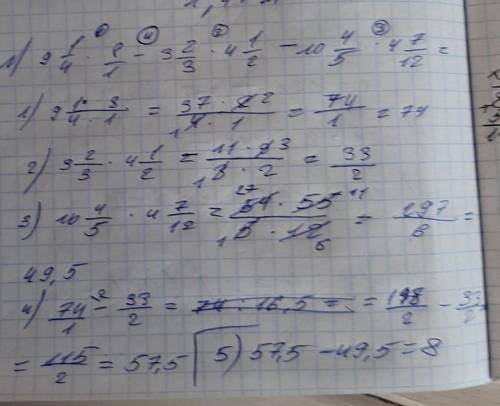 1) 9 1/4 · 8/1 − 3 2/3 · 4 1/2 − 10 4/5 · 4 7/12 =
1) 9 1/4 · 8/1 = 37 · 8 2 / 1 4 · 1 = 74/1 = 74
2) 3 2/3 · 4 1/2 = 11 · 9 3 / 1 3 · 2 = 33/2
3) 10 4/5 · 4 7/12 = 27 54 · 55 11 / 1 5 · 12 6 = 297/6 =
49,5
4) 74/1 − 33/2 = 74 − 16,5 = = 148/2 − 33/2
= 115/2 = 57,5 5) 57,5 − 49,5 = 8